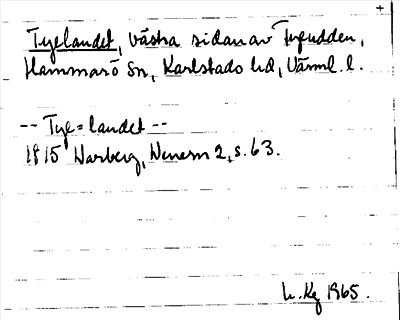 Tyelandet, västra sidan av Tyeudden,
Hammarö Sn, Karlstads hd, Värml. l.
-- Tye=landet --
1815 Warberg, Wenern 2, s. 63.
1965.